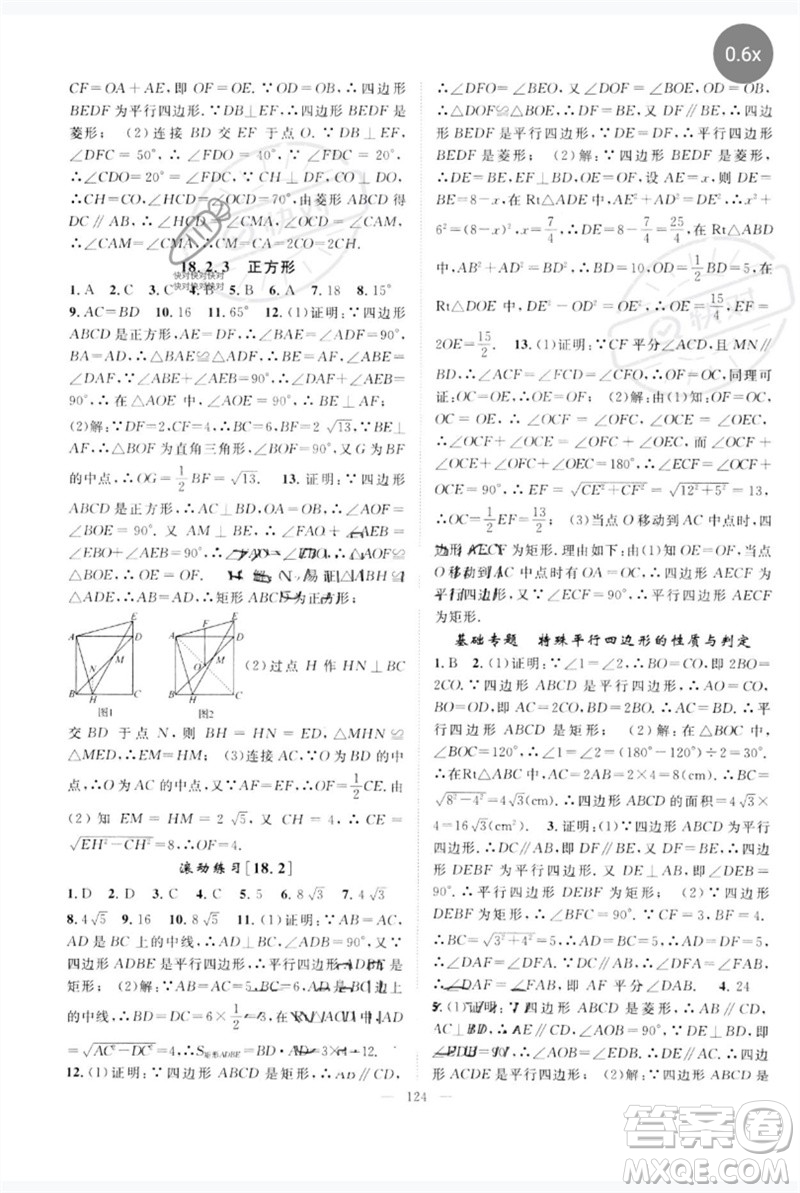 0.6x
CF=OA+AE,即 OF=OE.∵OD=OB,∴四边形
BEDF 为平行四边形.∵DB⊥EF,∴四边形 BEDF 是
菱形; (2)连接 BD 交 EF 于点 O.∵DB⊥EF,
∠DFC=50°,∴∠FDO=40°.∵∠CDF=20°,
∴∠CDO=20°,∴∠HCD=70°.由菱形 ABCD 得
DC∥AB,∴∠HCD=∠CMA,∠OCD=∠CAM,
∴∠CMA=∠CAM,∴CA=2CO=2CH.
18.2.3 正方形
快对快对快对
快对快对快对
1.A 2.C 3.C 4.B 5.B 6.A 7.18 8.15°
9.AC=BD 10.16 11.65° 12.(1)证明:∵四边形
ABCD 是正方形,AE=DF,∴∠BAE=∠D=90°,
BA=AD,∴△BAE≌△ADF,∴∠DAF=∠ABE.
∵∠DAF+∠BAF=90°,∴∠DAF+∠AEB=90°,
∴在△AOE 中,∠AOE=90°,∴BE⊥AF;
(2)解:∵DF=2,CF=4,∴BC=6,BF=2√13.∵BE⊥
AF,∴△BOF 为直角三角形.∵BF=2√13,又 G 为 BF
的中点,∴OG=1/2BF=√13. 13.证明:∵四边形
ABCD 是正方形,∴AC⊥BD,OA=OB,∴∠AOF=
∠BOE=90°.又 AM⊥BE,∴∠FAO+∠AEB=
∠EBO+∠AEB=90°,∴∠FAO=∠EBO,∴△AOF≌
△BOE,∴OE=OF.
∴AB=AD,∴矩形 ABCD 为正方形;
A D E M B H C 图1
A D E M O B H C 图2
(2)过点 H 作 HN⊥BC
交 BD 于点 N,则 BH=HN=ED,△MHN≌
△MED,∴HM=EM; (3)连接 AC,∵O 为 BD 的中
点,∴O 为 AC 的中点.又∵AF=EF,∴OF=1/2CE.由
(2)知 EM=HM=2√5,∴EH=4√5,∴CE=
√(EH²-CH²)=8,∴OF=4.
滚动练习[18.2]
1.D 2.D 3.C 4.C 5.5 6.8√3 7.4√3
8.4√5 9.16 10.8√3 11.(1)证明:∵AB=AC,
AD 是 BC 上的中线,∴AD⊥BC,∴∠ADB=90°.又∵
四边形 ADBE 是平行四边形,∴四边形 ADBE 是
矩形; (2)解:∵AB=AC=5,BC=6,AD 是 BC 边上
的中线,∴BD=DC=6×1/2=3.在 Rt△ACD 中,AD
=√(AC²-DC²)=4,∴S矩形ADBE=BD·AD=3×4=12.
12.(1)证明:∵四边形 ABCD 是矩形,∴AB∥CD,
∴∠DFO=∠BEO.又∵∠DOF=∠BOE,OD=OB,
∴△DOF≌△BOE,∴DF=BE.又∵DF∥BE,∴四边形
BEDF 是平行四边形; (2)解:∵四边形 BEDF 是菱形,
∴DE=BE,DE=BF,OD=OB,EF⊥BD,设 AE=x,则
DE=BE=8-x,在 Rt△ADE 中,AE²+AD²=DE²,∴x²+
6²=(8-x)²,∴x=7/4,∴DE=8-7/4=25/4.在 Rt△ABD
中,∵AB²+AD²=BD²,∴BD=10,∴OD=1/2BD=5.
在 Rt△DOE 中,DE²-OD²=OE²,∴OE=15/4,EF=
2OE=15/2. 13.(1)证明:∵CF 平分∠ACD,且 MN∥
BD,∴∠ACF=∠FCD=∠CFO,∴OF=OC,同理可
证:OC=OE,∴OE=OF; (2)解:由(1)知:OF=OC,
OC=OE,∴∠OCF=∠OFC,∠OCE=∠OEC,
∴∠OCF+∠OCE=∠OFC+∠OEC.而∠OCF+
∠OCE+∠OFC+∠OEC=180°,∴∠ECF=∠OCF+
∠OCE=90°,∴EF=√(CE²+CF²)=√(12²+5²)=13,
∴OC=1/2EF=13/2; (3)当点 O 移动到 AC 中点时,四
边形 AECF 为矩形.理由如下:由(1)知 OE=OF,当点
O 移动到 AC 中点时有 OA=OC,∴四边形 AECF 为
平行四边形,又∵∠ECF=90°,∴四边形 AECF
为矩形.
基础专题 特殊平行四边形的性质与判定
1.B 2.(1)证明:∵∠1=∠2,∴BO=CO,即 2BO=
2CO.∵四边形 ABCD 是平行四边形,∴AO=CO,
BO=OD,∴AC=2CO,BD=2BO,∴AC=BD,∴四边形
ABCD 是矩形; (2)解:在△BOC 中,
∵∠BOC=120°,∴∠1=∠2=(180°-120°)÷2=30°,
∴在Rt△ABC 中,AC=2AB=2×4=8(cm),∴BC=
√(8²-4²)=4√3(cm).∴四边形 ABCD 的面积=4√3×
4=16√3(cm²). 3.证明:(1)∵四边形 ABCD 是平行四
边形,∴AB∥CD,∵BE∥DF,BE=DF,∴四边形
DEBF 是平行四边形.∵DE⊥AB,∴∠DEB=
90°,∴四边形 DEBF 是矩形; (2)∵四边形
DEBF 为矩形,∴∠BFC=90°.∵CF=3,BF=4,
∴BC=√(3²+4²)=5,∴AD=BC=5,∴AD=DF=5,
∴∠DAF=∠DFA.∵AB∥CD,∴∠DFA=∠FAB,
∴∠DAF=∠FAB,即 AF 平分∠DAB. 4.24
5.(1)证明:∵四边形 ABCD 是菱形,∴
AC⊥BD,∴∠AOB=90°,
∠EDB=∠AOB=90°,∴DE∥AC,∴四边形
ACDE 是平行四边形; (2)解:∵四边形 ABCD 是
124
答案圈
MXQE.COM